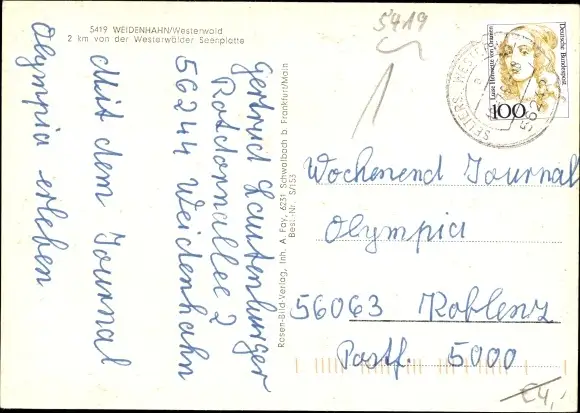 5419 WEIDENHAHN/Westerwald
2 km von der Westerwälder Seenplatte
Gertrud Lautenburger
Rotdornallee 2
56244 Weidenhahn
Mit dem Journal
Olympia erleben
Rosen-Bild-Verlag, Inh. A. Fay, 6231 Schwalbach b. Frankfurt/Main
Best.-Nr. S/155
5419
Deutsche Bundespost
Luise Henriette von Oranien
100
SELTERS, WESTERW
Wochenend Journal
Olympia
56063 Koblenz
Postf. 5000
€4,-